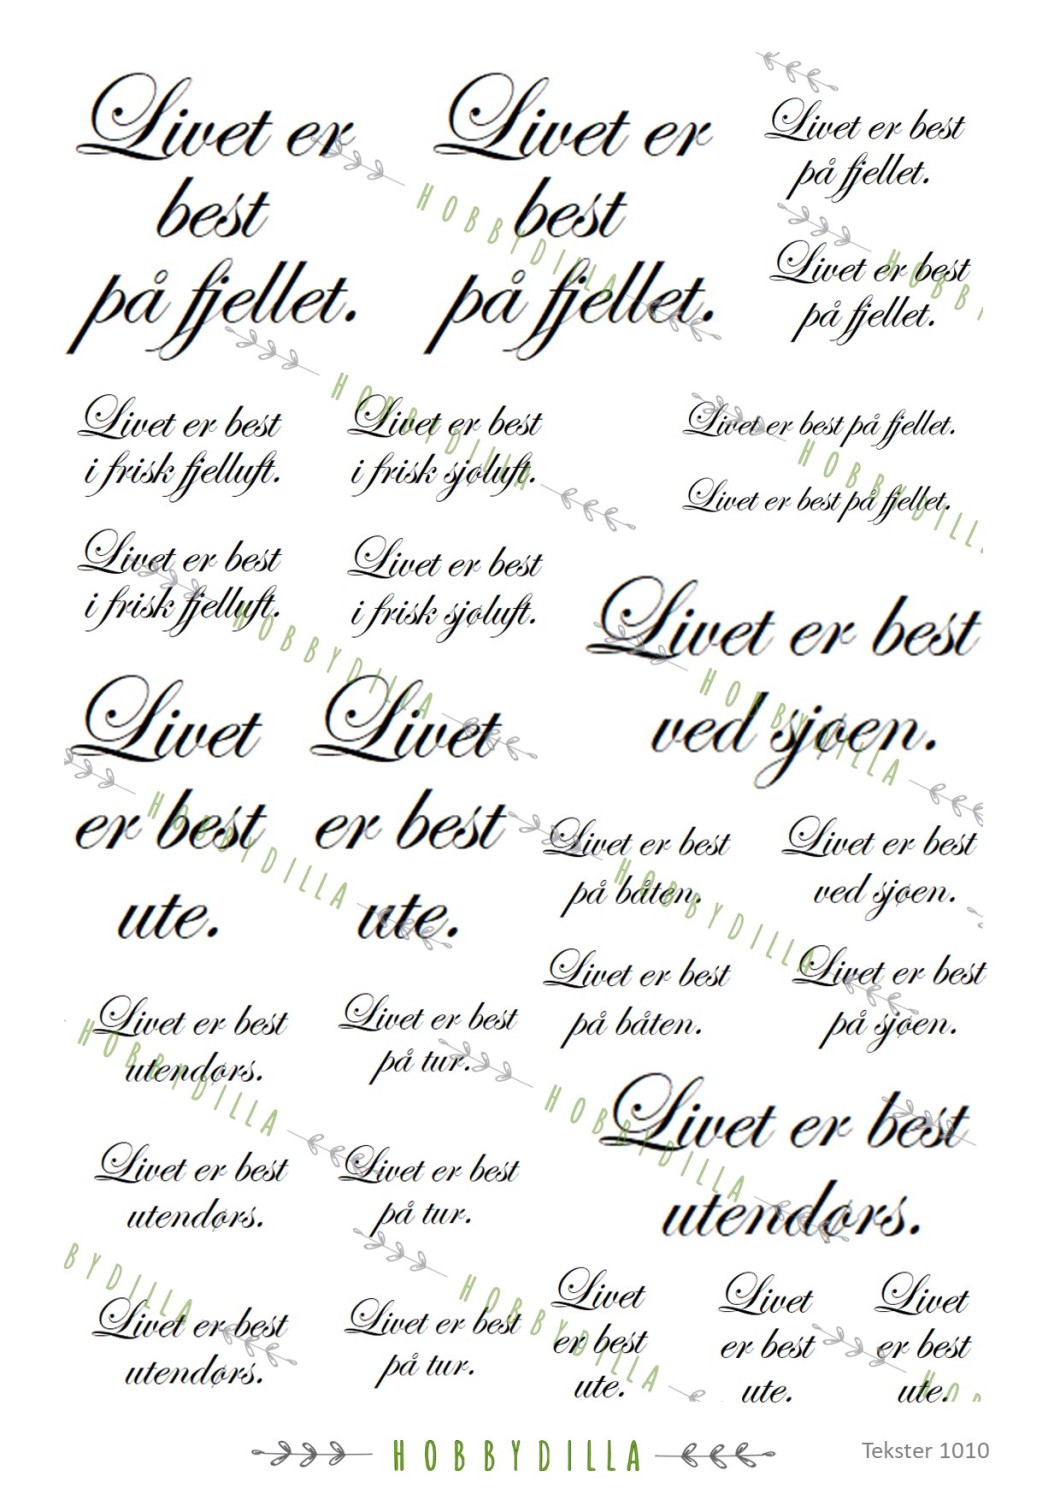 Livet er
best
på fjellet.
Livet er
best
på fjellet.
Livet er best
på fjellet.
Livet er best
på fjellet.
Livet er best
i frisk fjelluft.
Livet er best
i frisk sjøluft.
Livet er best på fjellet.
Livet er best på fjellet.
Livet er best
i frisk fjelluft.
Livet er best
i frisk sjøluft.
Livet er best
ved sjøen.
Livet
er best
ute.
Livet
er best
ute.
Livet er best
på båten.
Livet er best
ved sjøen.
Livet er best
på båten.
Livet er best
på sjøen.
Livet er best
utendørs.
Livet er best
på tur.
Livet er best
utendørs.
Livet er best
utendørs.
Livet er best
på tur.
Livet er best
utendørs.
Livet er best
på tur.
Livet
er best
ute.
Livet
er best
ute.
Livet
er best
ute.
HOBBYDILLA
HOBBYDILLA
HOBBYDILLA
HOBBYDILLA
HOBBYDILLA
HOBBYDILLA
HOBBYDILLA
HOBBYDILLA
HOBBYDILLA
HOBBYDILLA
HOBBYDILLA
Tekster 1010